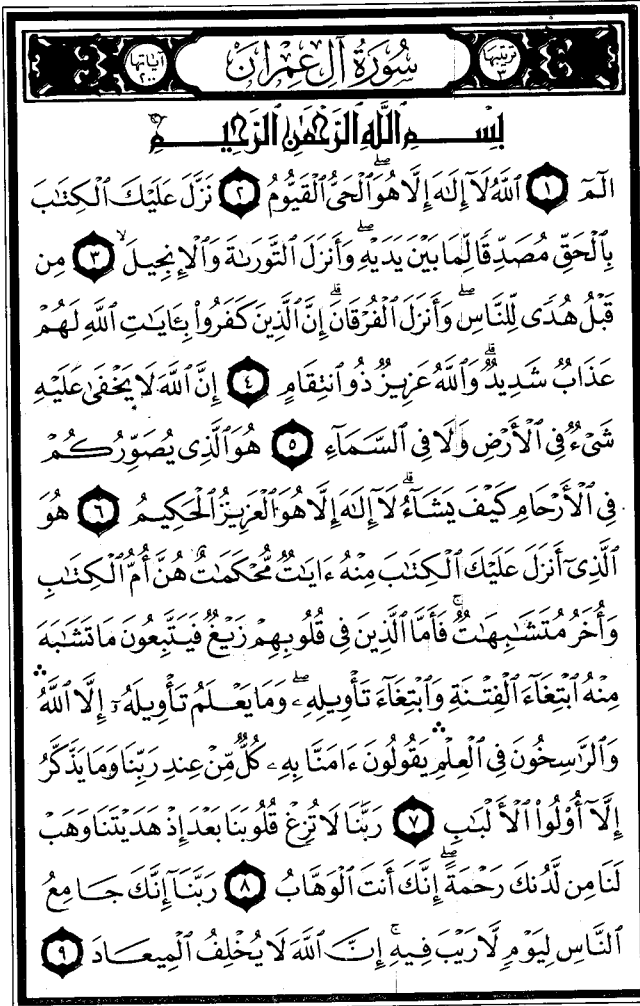 ترتيبها ٣ سُورَةُ آلِ عِمْرَانَ آياتها ٢٠٠
بِسْمِ ٱللَّهِ ٱلرَّحْمَٰنِ ٱلرَّحِيمِ
الٓمٓ ١ ٱللَّهُ لَآ إِلَٰهَ إِلَّا هُوَ ۖ ٱلْحَىُّ ٱلْقَيُّومُ ٢ نَزَّلَ عَلَيْكَ ٱلْكِتَٰبَ
بِٱلْحَقِّ مُصَدِّقًا لِّمَا بَيْنَ يَدَيْهِ ۖ وَأَنزَلَ ٱلتَّوْرَىٰةَ وَٱلْإِنجِيلَ ۙ ٣ مِن
قَبْلُ هُدًى لِّلنَّاسِ ۖ وَأَنزَلَ ٱلْفُرْقَانَ ۗ إِنَّ ٱلَّذِينَ كَفَرُوا۟ بِـَٔايَٰتِ ٱللَّهِ لَهُمْ
عَذَابٌ شَدِيدٌ ۗ وَٱللَّهُ عَزِيزٌ ذُو ٱنتِقَامٍ ٤ إِنَّ ٱللَّهَ لَا يَخْفَىٰ عَلَيْهِ
شَىْءٌ فِى ٱلْأَرْضِ وَلَا فِى ٱلسَّمَآءِ ٥ هُوَ ٱلَّذِى يُصَوِّرُكُمْ
فِى ٱلْأَرْحَامِ كَيْفَ يَشَآءُ ۗ لَآ إِلَٰهَ إِلَّا هُوَ ٱلْعَزِيزُ ٱلْحَكِيمُ ٦ هُوَ
ٱلَّذِىٓ أَنزَلَ عَلَيْكَ ٱلْكِتَٰبَ مِنْهُ ءَايَٰتٌ مُّحْكَمَٰتٌ هُنَّ أُمُّ ٱلْكِتَٰبِ
وَأُخَرُ مُتَشَٰبِهَٰتٌ ۚ فَأَمَّا ٱلَّذِينَ فِى قُلُوبِهِمْ زَيْغٌ فَيَتَّبِعُونَ مَا تَشَٰبَهَ
مِنْهُ ٱبْتِغَآءَ ٱلْفِتْنَةِ وَٱبْتِغَآءَ تَأْوِيلِهِۦ ۖ وَمَا يَعْلَمُ تَأْوِيلَهُۥٓ إِلَّا ٱللَّهُ ۛ
وَٱلرَّٰسِخُونَ فِى ٱلْعِلْمِ ۛ يَقُولُونَ ءَامَنَّا بِهِۦ كُلٌّ مِّنْ عِندِ رَبِّنَا وَمَا يَذَّكَّرُ
إِلَّآ أُو۟لُوا۟ ٱلْأَلْبَٰبِ ٧ رَبَّنَا لَا تُزِغْ قُلُوبَنَا بَعْدَ إِذْ هَدَيْتَنَا وَهَبْ
لَنَا مِن لَّدُنكَ رَحْمَةً ۖ إِنَّكَ أَنتَ ٱلْوَهَّابُ ٨ رَبَّنَآ إِنَّكَ جَامِعُ
ٱلنَّاسِ لِيَوْمٍ لَّا رَيْبَ فِيهِ ۚ إِنَّ ٱللَّهَ لَا يُخْلِفُ ٱلْمِيعَادَ ٩